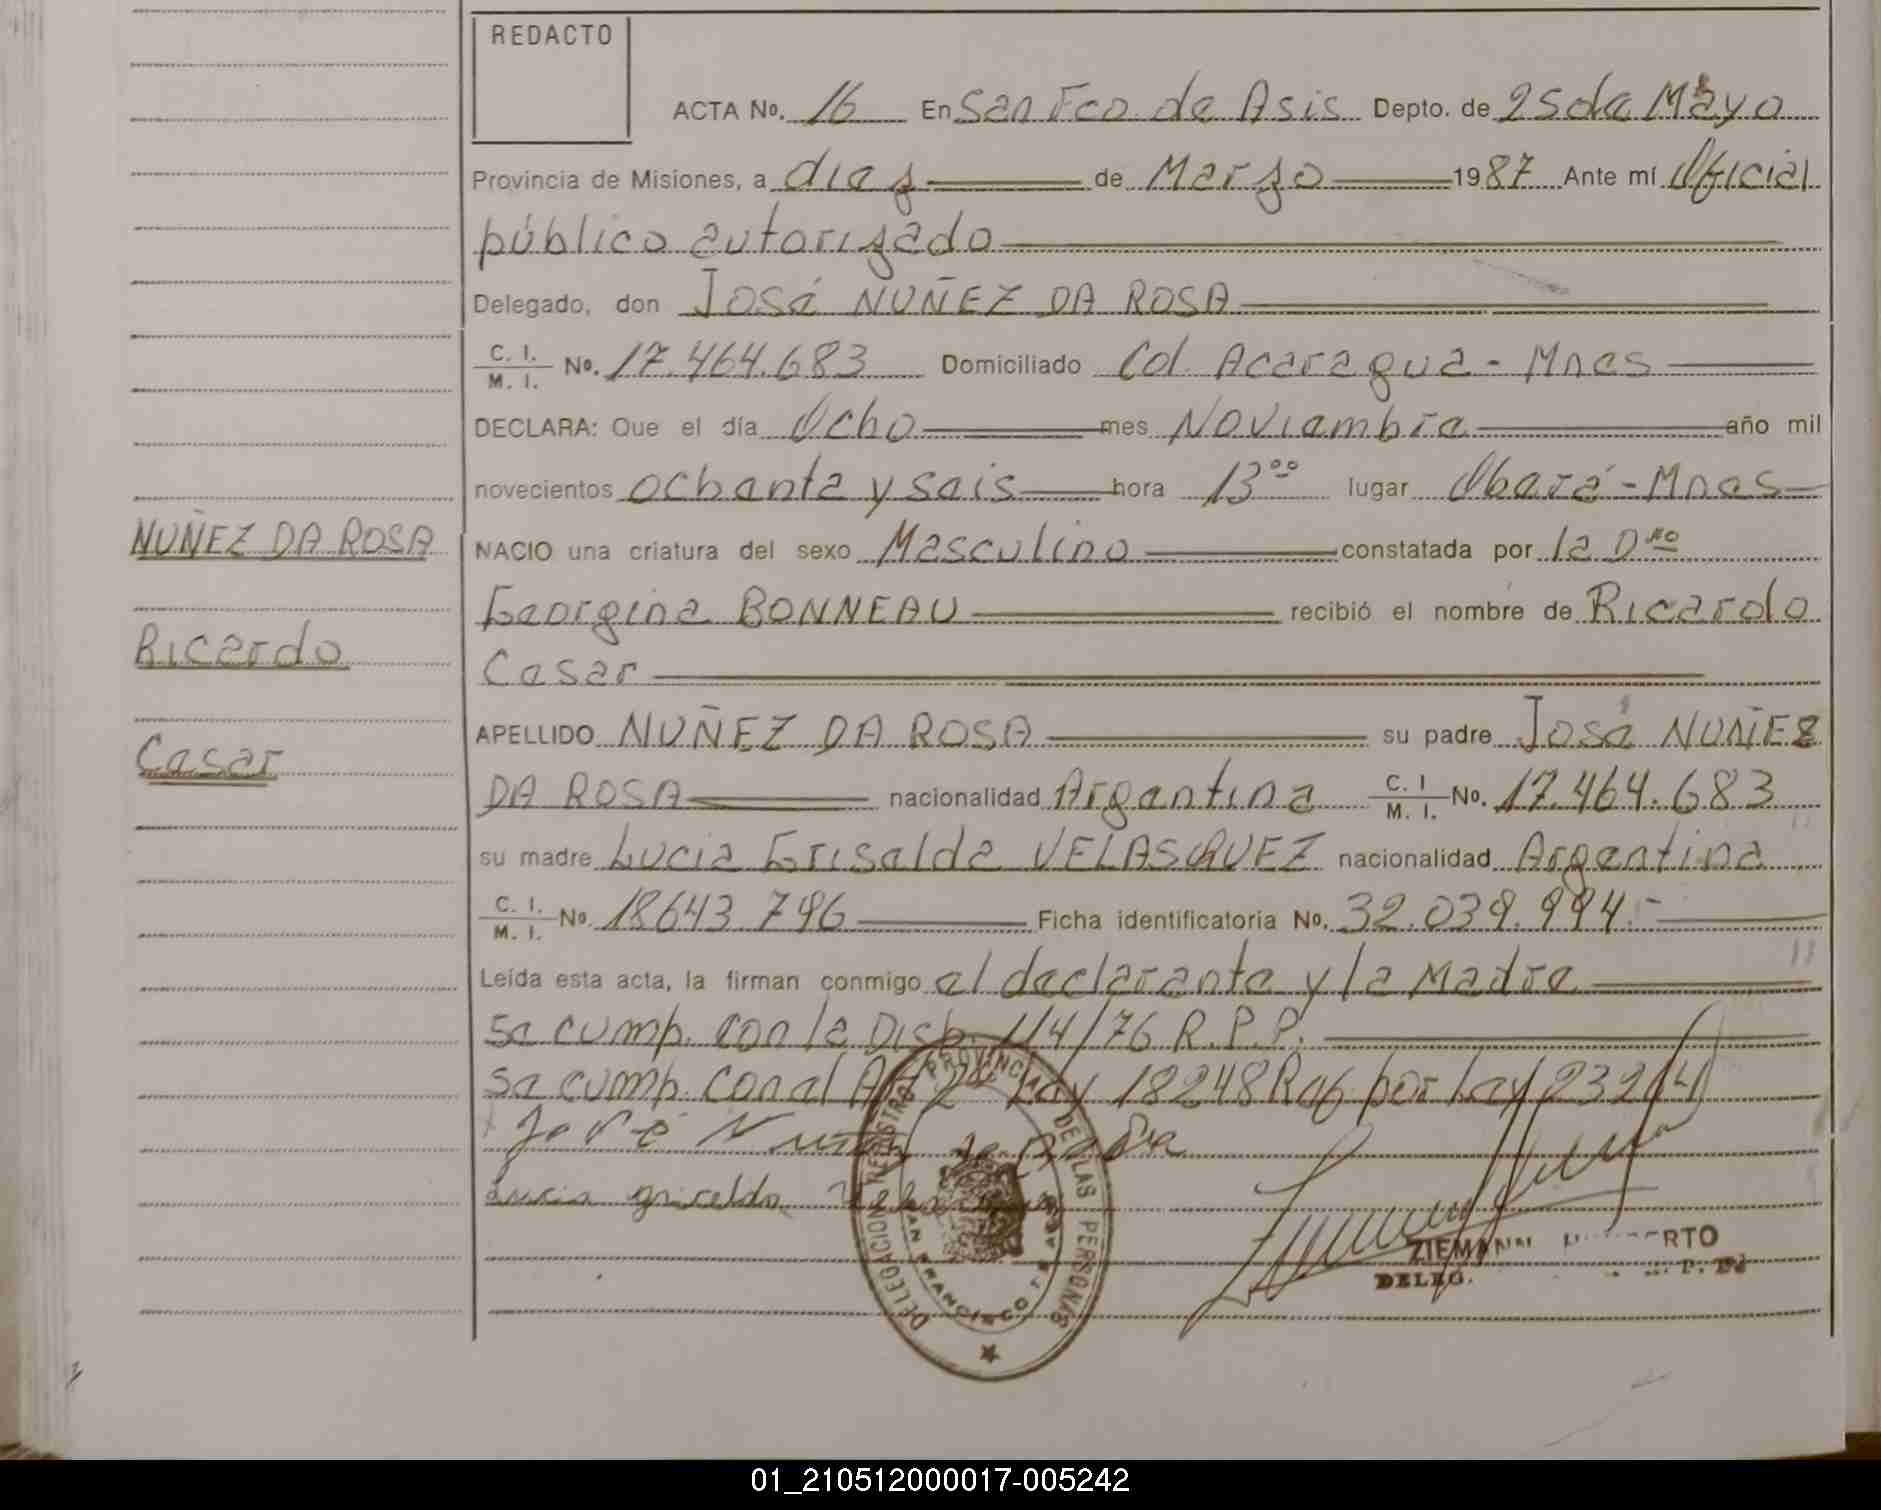 REDACTO
ACTA No. 16 En San Fco. de Asis Depto. de 25 de Mayo
Provincia de Misiones, a diez de Marzo 1987 Ante mí Oficial
público autorizado
Delegado, don José NUÑEZ DA ROSA
C. I. / M. I. No. 17.464.683 Domiciliado Col. Acaragua - Mnes
DECLARA: Que el día Ocho mes Noviembre año mil
novecientos ochenta y seis hora 13⁰⁰ lugar Oberá - Mnes
NUÑEZ DA ROSA
NACIO una criatura del sexo Masculino constatada por la Dra
Georgina BONNEAU recibió el nombre de Ricardo
Ricardo
Cesar
APELLIDO NUÑEZ DA ROSA su padre José NUÑEZ
Cesar
DA ROSA nacionalidad Argentina C. I. / M. I. No. 17.464.683
su madre Lucia Griselda VELASQUEZ nacionalidad Argentina
C. I. / M. I. No. 18643.796 Ficha identificatoria No. 32.039.994.-
Leída esta acta, la firman conmigo el declarante y la Madre
Se cump. con la Disp. 1/4/76 R.P.P.
Se cump. con el Art 2 Ley 18248 Ley
José Nuñez da Rosa
Lucia griselda
DELEGACION REGISTRO PROVINCIAL DE LAS PERSONAS
SAN FRANCISCO DE ASIS
ZIEMANN
DELEG.
01_210512000017-005242